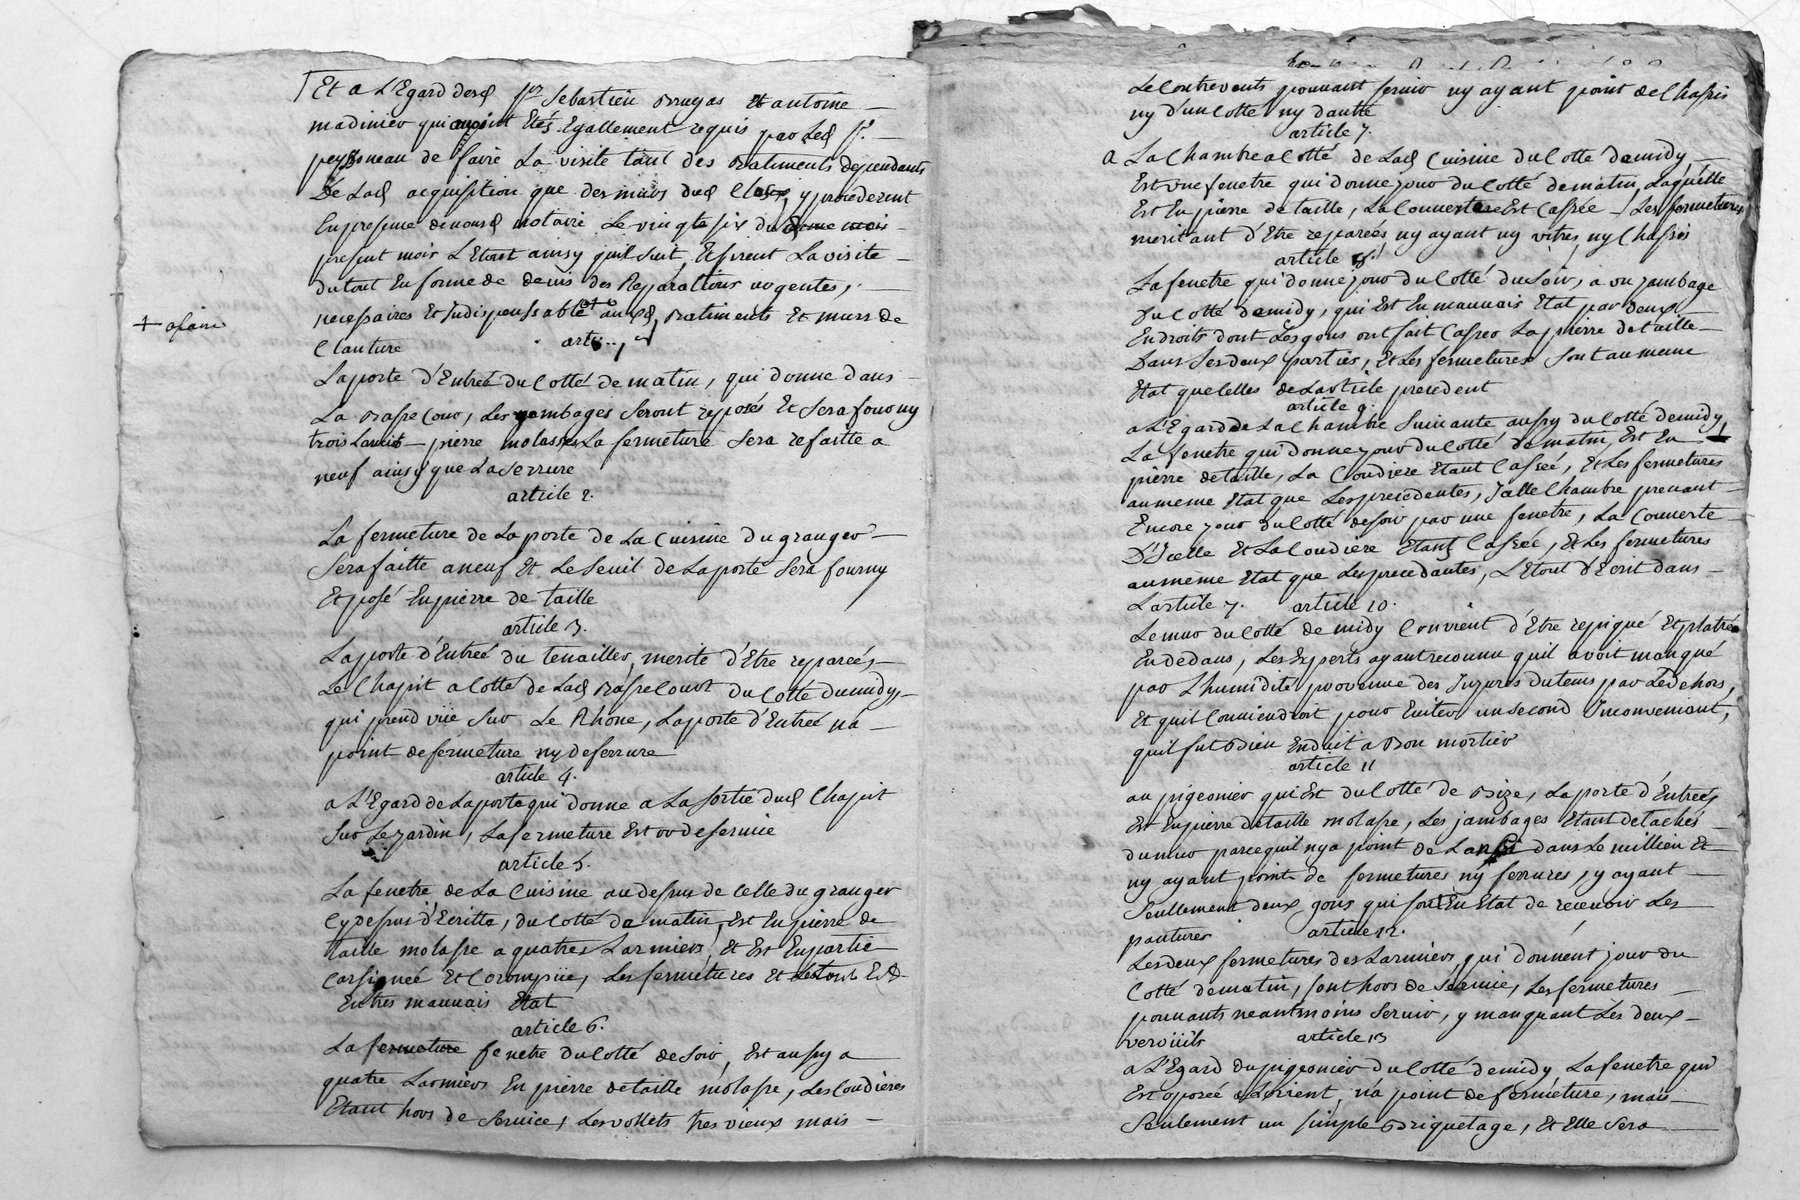 Et a L'Egard desd srs Sebastien Bruyas Et antoine
madinier qui auoint Etés Egallement requis par Led sr.
peyssneau de faire La visite tant des Batiments dependants
De Lad acquisition que des murs dud Clos, y procederent
En presence de nousd notaire Le vingt six du
present mois L'Etoit ainsy quil suit, Et firent La visite
du tout En forme de devis des Reparations urgentes,
necessaires Et Indispensables auxd Batiments Et murs de
+ a faire
Clauture
La porte d'Entreé du Cotté de matin, qui donne dans
La Basse Cour, Les jambages seront reposés Et sera fourny
trois pierre molasse, La fermeture sera refaitte a
neuf ainsy que La serrure
article 2.
La fermeture de La porte de La Cuisine du granger
sera faitte a neuf Et Le seuil de La porte sera fourny
Et posé En pierre de taille
article 3.
La porte d'Entreé du tenailler, merite d'Etre repareé,
Le Chapit a Cotté de Lad Basse Cour du Cotté du midy,
qui prend vüe sur Le Rhône, La porte d'Entreé na
point de fermeture ny de ferrure
article 4.
a L'Egard de La porte qui donne a La sortie dud Chapit
sur Le jardin, La fermeture Est
article 5.
La fenetre de La Cuisine au dessus de Celle du granger
Cy dessus d'Ecritte, du Cotté de matin, Est En pierre de
taille molasse a quatre Larmiers, Et Est En partie
Et Corompüe, Les fermetures Et Le tout Est
En tres mauuais Etat
article 6.
La fermeture fenetre du Cotté de soir, Est aussy a
quatre Larmiers En pierre de taille molasse, Les Coudieres
Etant hors de seruice, Les vollets tres vieux mais
Le Contrevents pouuant seruir ny ayant point de Chassis
ny d'un Cotté ny dautre
article 7.
a La Chambre a Cotté de Lad Cuisine du Cotté de midy,
Est vne fenetre qui donne jour du Cotté de matin, Laquelle
Est En pierre de taille, La Couuerte Est Cassée, Les fermetures
meritant d'Etre repareés ny ayant ny vitres, ny Chassis
article 8.
La fenetre qui donne jour du Cotté du soir, a vn jambage
Du Cotté de midy, qui Est En mauuais Etat par deux
Endroits dont Les gons ont fait Casser La pierre de taille
Dans Les deux parties, Et Les fermetures sont au meme
Etat que Celles de L'article precedent
article 9.
a L'Egard de La Chambre suiuante aussy du Cotté de midy,
La fenetre qui donne jour du Cotté de matin, Est En
pierre de taille, La Coudiere Etant Casseé, Et Les fermetures
au meme Etat que Les precedentes, Icelle Chambre prenant
Encore jour du Cotté de soir par une fenetre, La Couuerte
D'Icelle Et La Coudiere Etant Casseé, Et Les fermetures
au même Etat que Les precedantes, L'Etout d'Ecrit dans
L'article 7. article 10.
Le mur du Cotté de midy Convient d'Etre repiqué Et platré
En dedans, Les Experts ayant reconnu quil avoit manqué
par L'humidité provenue des Injures du tems par Le dehors,
Et quil Conuiendroit pour Euiter un second Inconveniant,
quil fut Bien Enduit a Bon mortier
article 11
au pigeonier qui Est du Cotté de Bize, La porte d'Entreé,
Est En pierre de taille molasse, Les jambages Etant detachés
du mur parce quil ny a point de dans Le millieu Et
ny ayant point de fermetures ny ferrures, y ayant
seullement deux gons qui sont En Etat de recevoir Les
pantures article 12.
Les deux fermetures des Larmiers, qui donnent jour du
Cotté de matin, sont hors de seruice, Les fermetures
pouuants neantmoins seruir, y manquant Les deux
veroüils article 13
a L'Egard du pigeonier du Cotté de midy La fenetre qui
Est oposeé a Lorient, n'a point de fermeture, mais
seulement un simple Briquetage, Et Elle sera